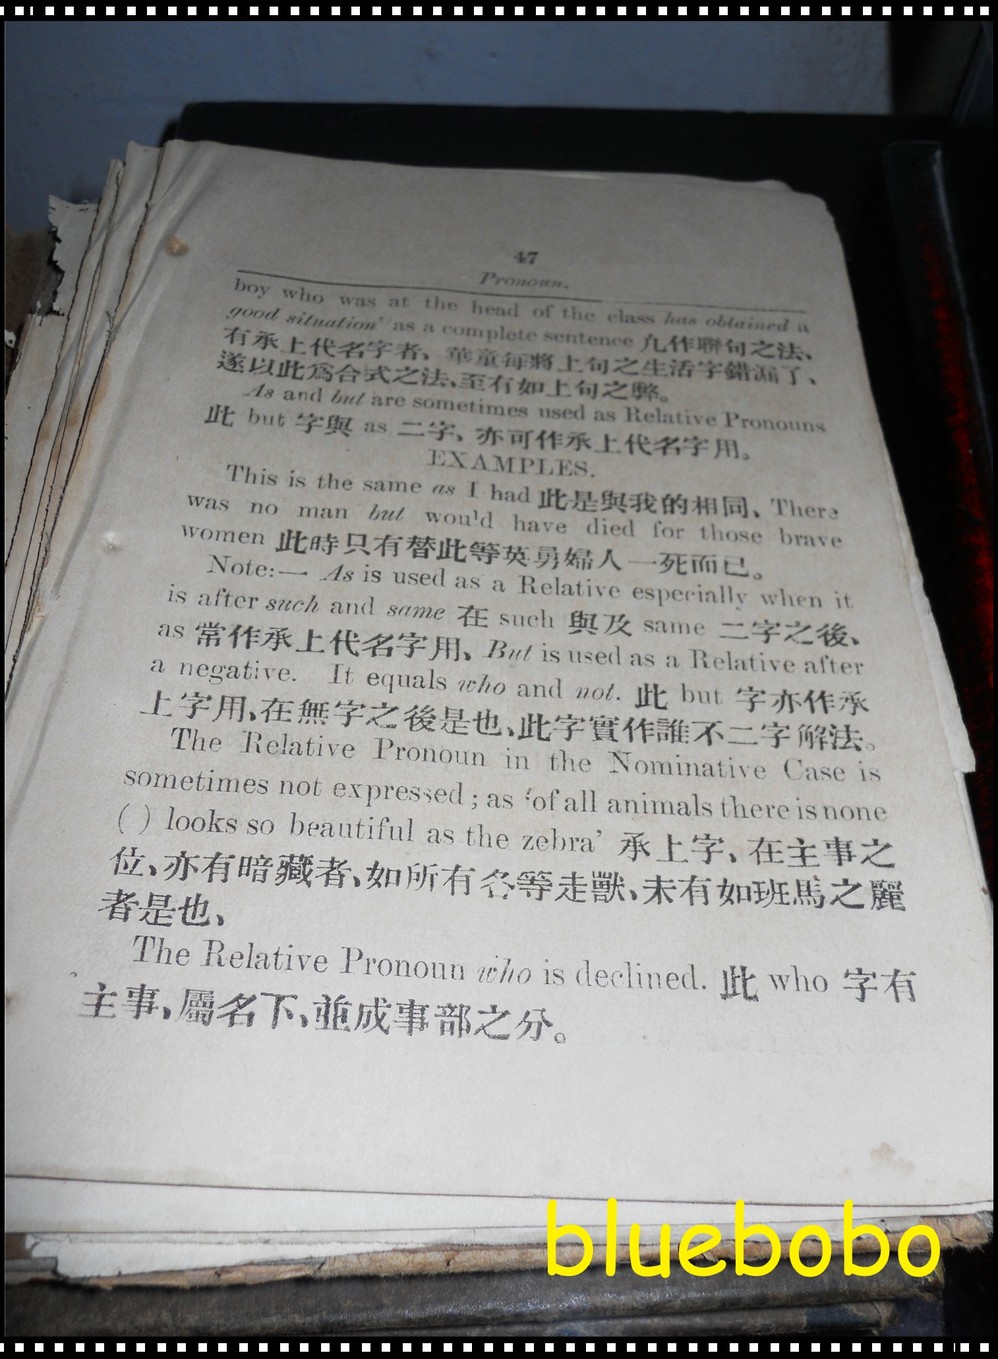 47
Pronoun.
boy who was at the head of the class has obtained a
good situation’ as a complete sentence 凢作聯句之法、
有承上代名字者、華童每將上句之生活字錯漏了、
遂以此爲合式之法、至有如上句之弊。
As and but are sometimes used as Relative Pronouns
此 but 字與 as 二字、亦可作承上代名字用。
EXAMPLES.
This is the same as I had 此是與我的相同、There
was no man but would have died for those brave
women 此時只有替此等英勇婦人一死而已。
Note:— As is used as a Relative especially when it
is after such and same 在 such 與及 same 二字之後、
as 常作承上代名字用、But is used as a Relative after
a negative. It equals who and not. 此 but 字亦作承
上字用、在無字之後是也、此字實作誰不二字解法。
The Relative Pronoun in the Nominative Case is
sometimes not expressed; as ‘of all animals there is none
( ) looks so beautiful as the zebra’ 承上字、在主事之
位、亦有暗藏者、如所有各等走獸、未有如班馬之麗
者是也、
The Relative Pronoun who is declined. 此 who 字有
主事、屬名下、並成事部之分。
bluebobo